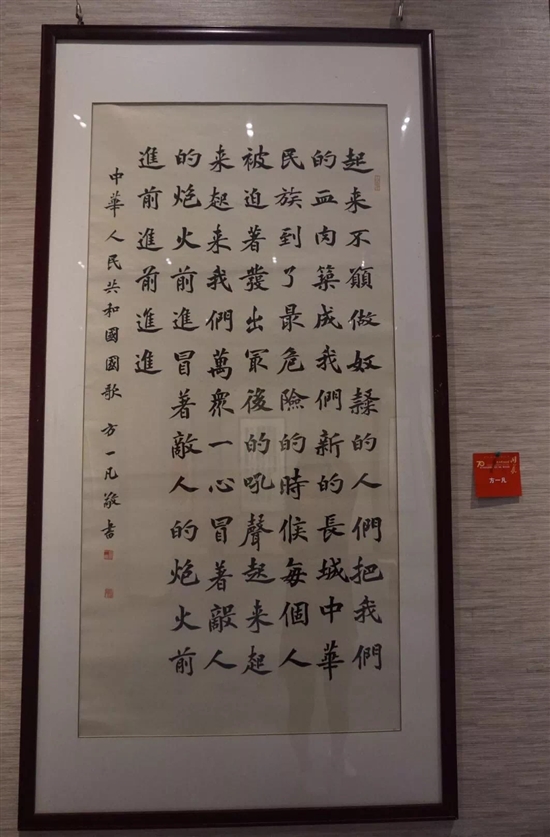 起来不願做奴隸的人們把我們
的血肉築成我們新的長城中華
民族到了最危險的時候每個人
被迫著發出最後的吼聲起来起
来起来我們萬衆一心冒著敵人
的炮火前進冒著敵人的炮火前
進前進前進進
中華人民共和國國歌 方一凡敬書
方一凡